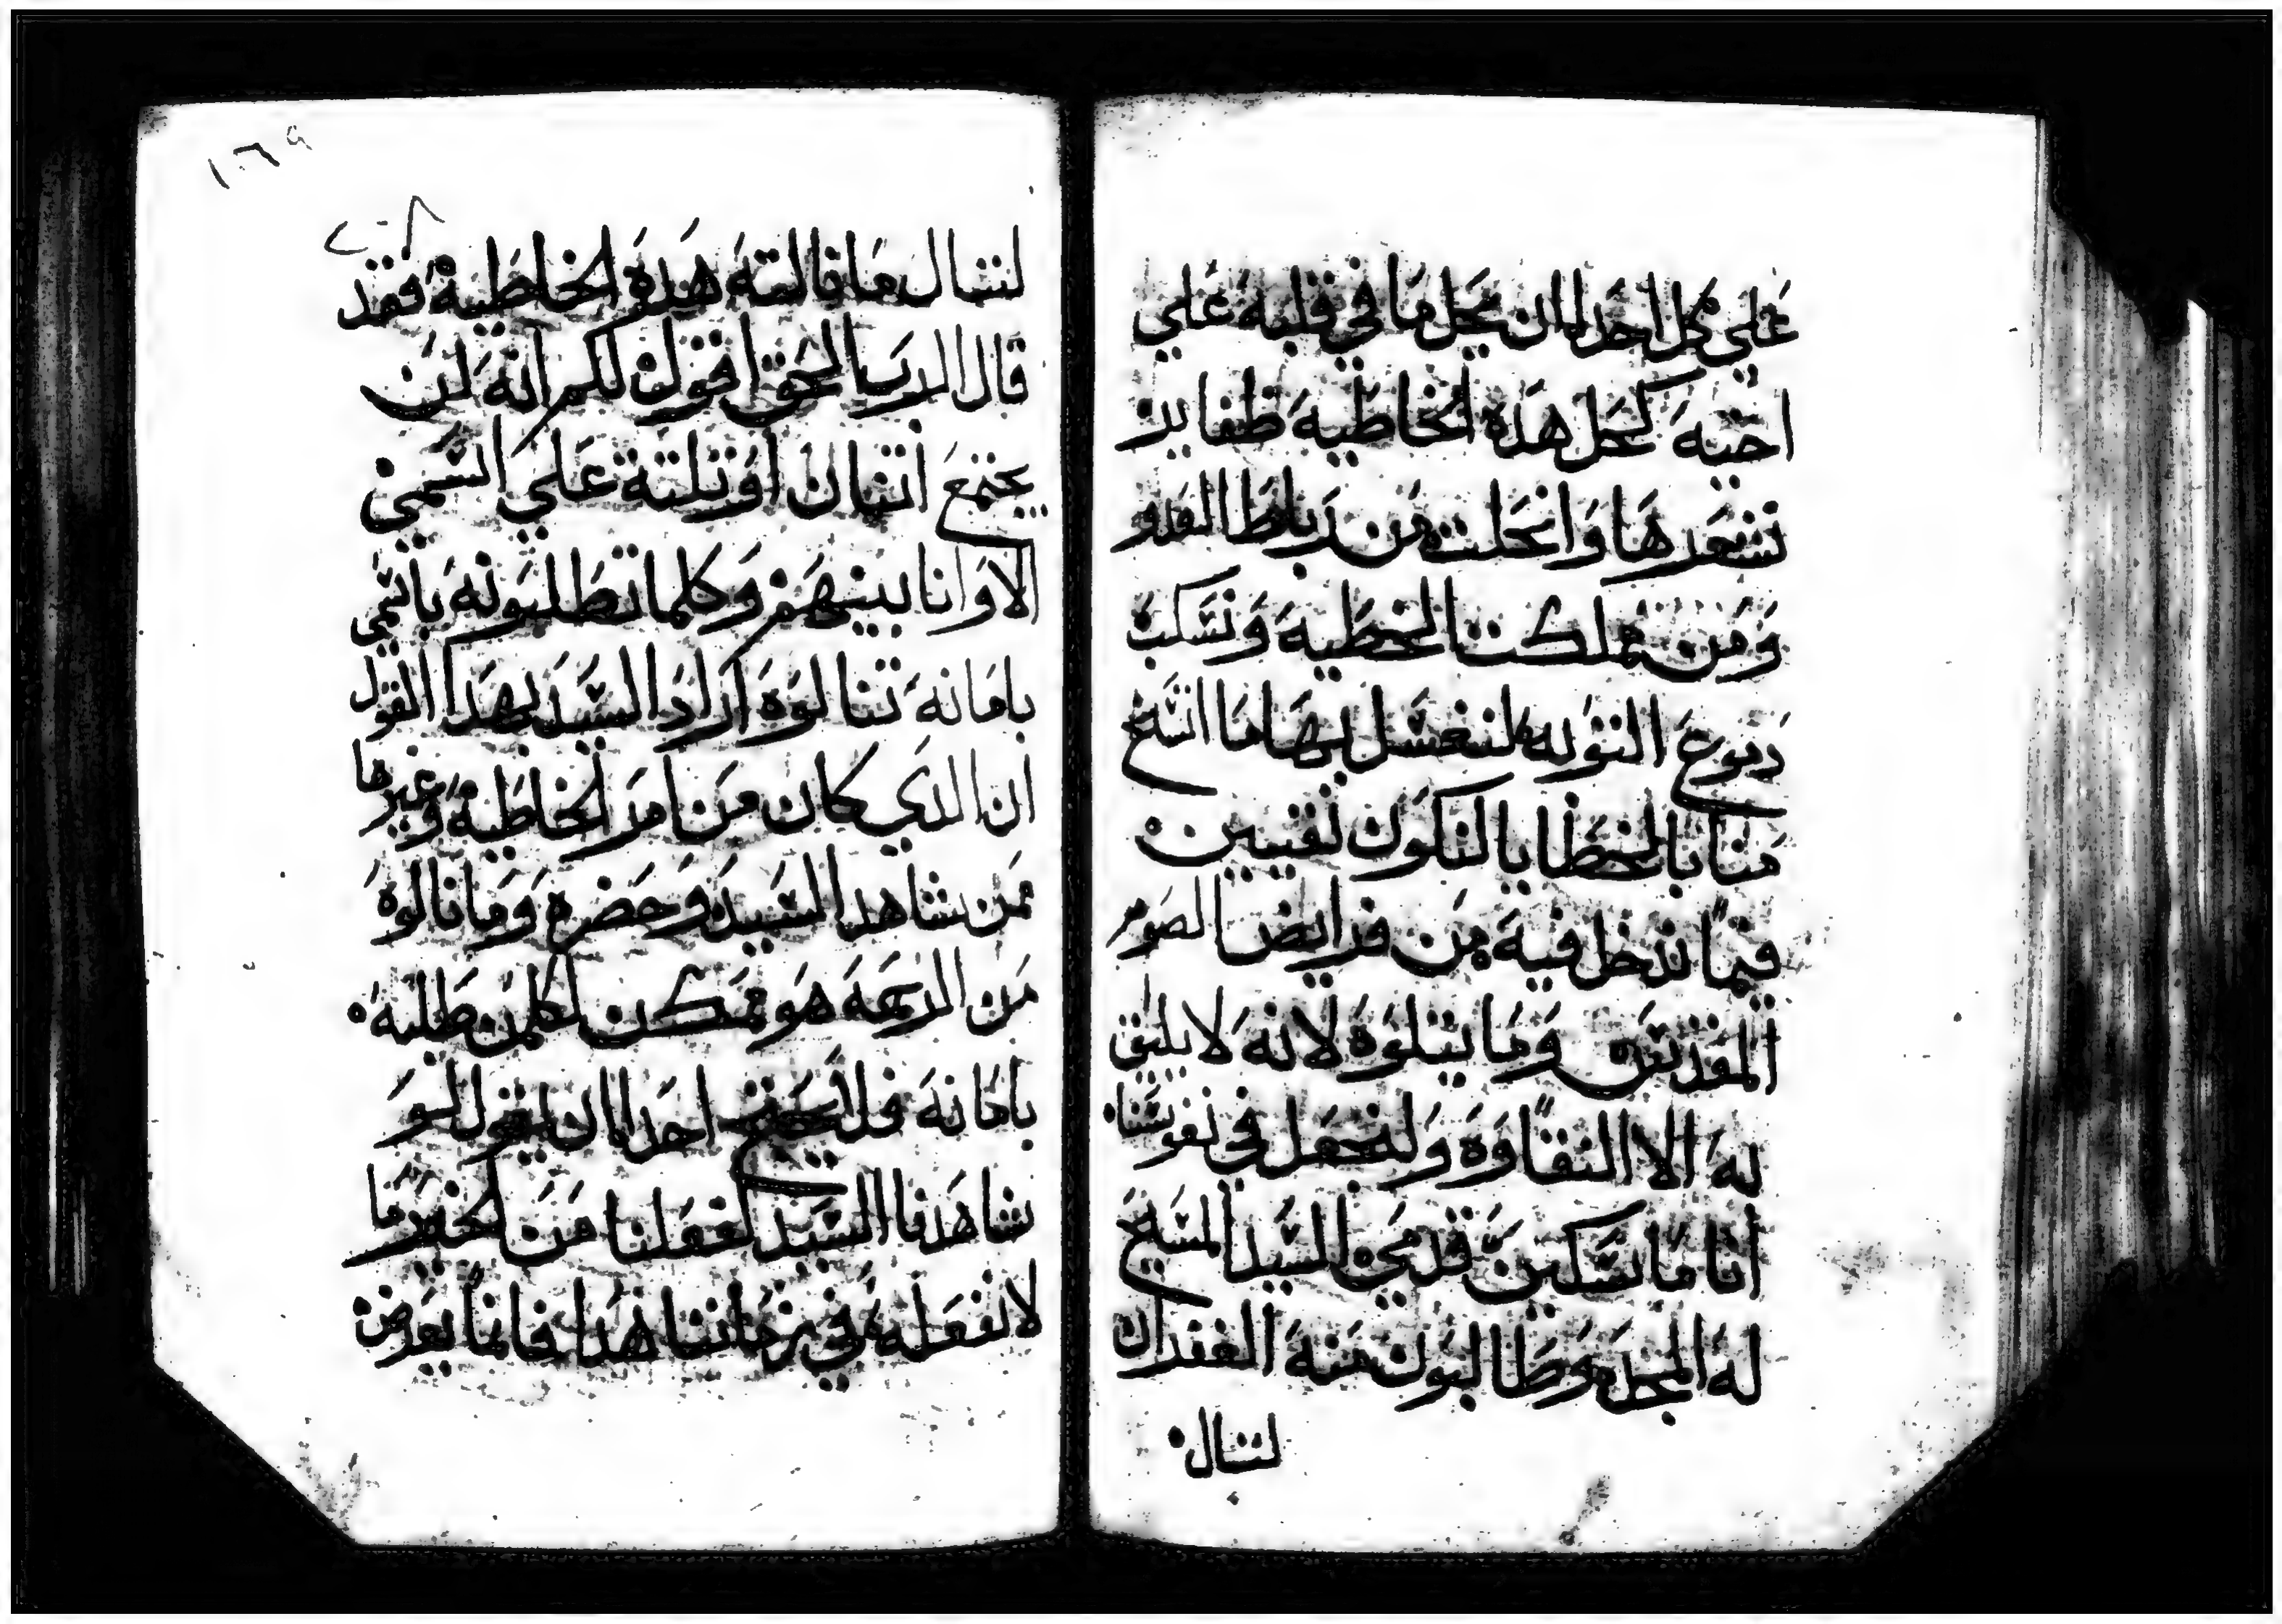 علي كل احدا ان يحل ما في قلبه علي
اخيه كحل هذه الخاطيه ظفاير
شعرها وانحلت من رباط العدو
ومن مملكت الخطيه ونسكب
دموع التوبه لنغسل بها ما اتسخ
منا بالخطايا لنكون نقيين
فيما ندخل فيه من فرايض الصوم
المقدس وما يتلوه لانه لا يليق
له الا النقاوه ولنجعل في نفوسنا
اننا ماسكين قدمي السيد المسيح
له المجد وطالبون منه الغفران
لننال
١٦٩
٢٠٨
لننال ما قالته هذه الخاطيه فقد
قال الرب الحق اقول لكم انه لن
يجتمع اثنان او ثلثة علي اسمي
الا وانا بينهم وكلما تطلبونه باسمي
بامانه تنالوه اراد السيد بهذا القول
ان الذي كان من امر الخاطيه وغيرها
ممن شاهد السيد وحضره وما نالوه
من الرحمه هو ممكن لكلمن طلبه
بامانه فلا يحتج احدا ان يقول لو
شاهدنا السيد لفعلنا من الخير ما
لا نفعله في زماننا هذا فانما يعرض